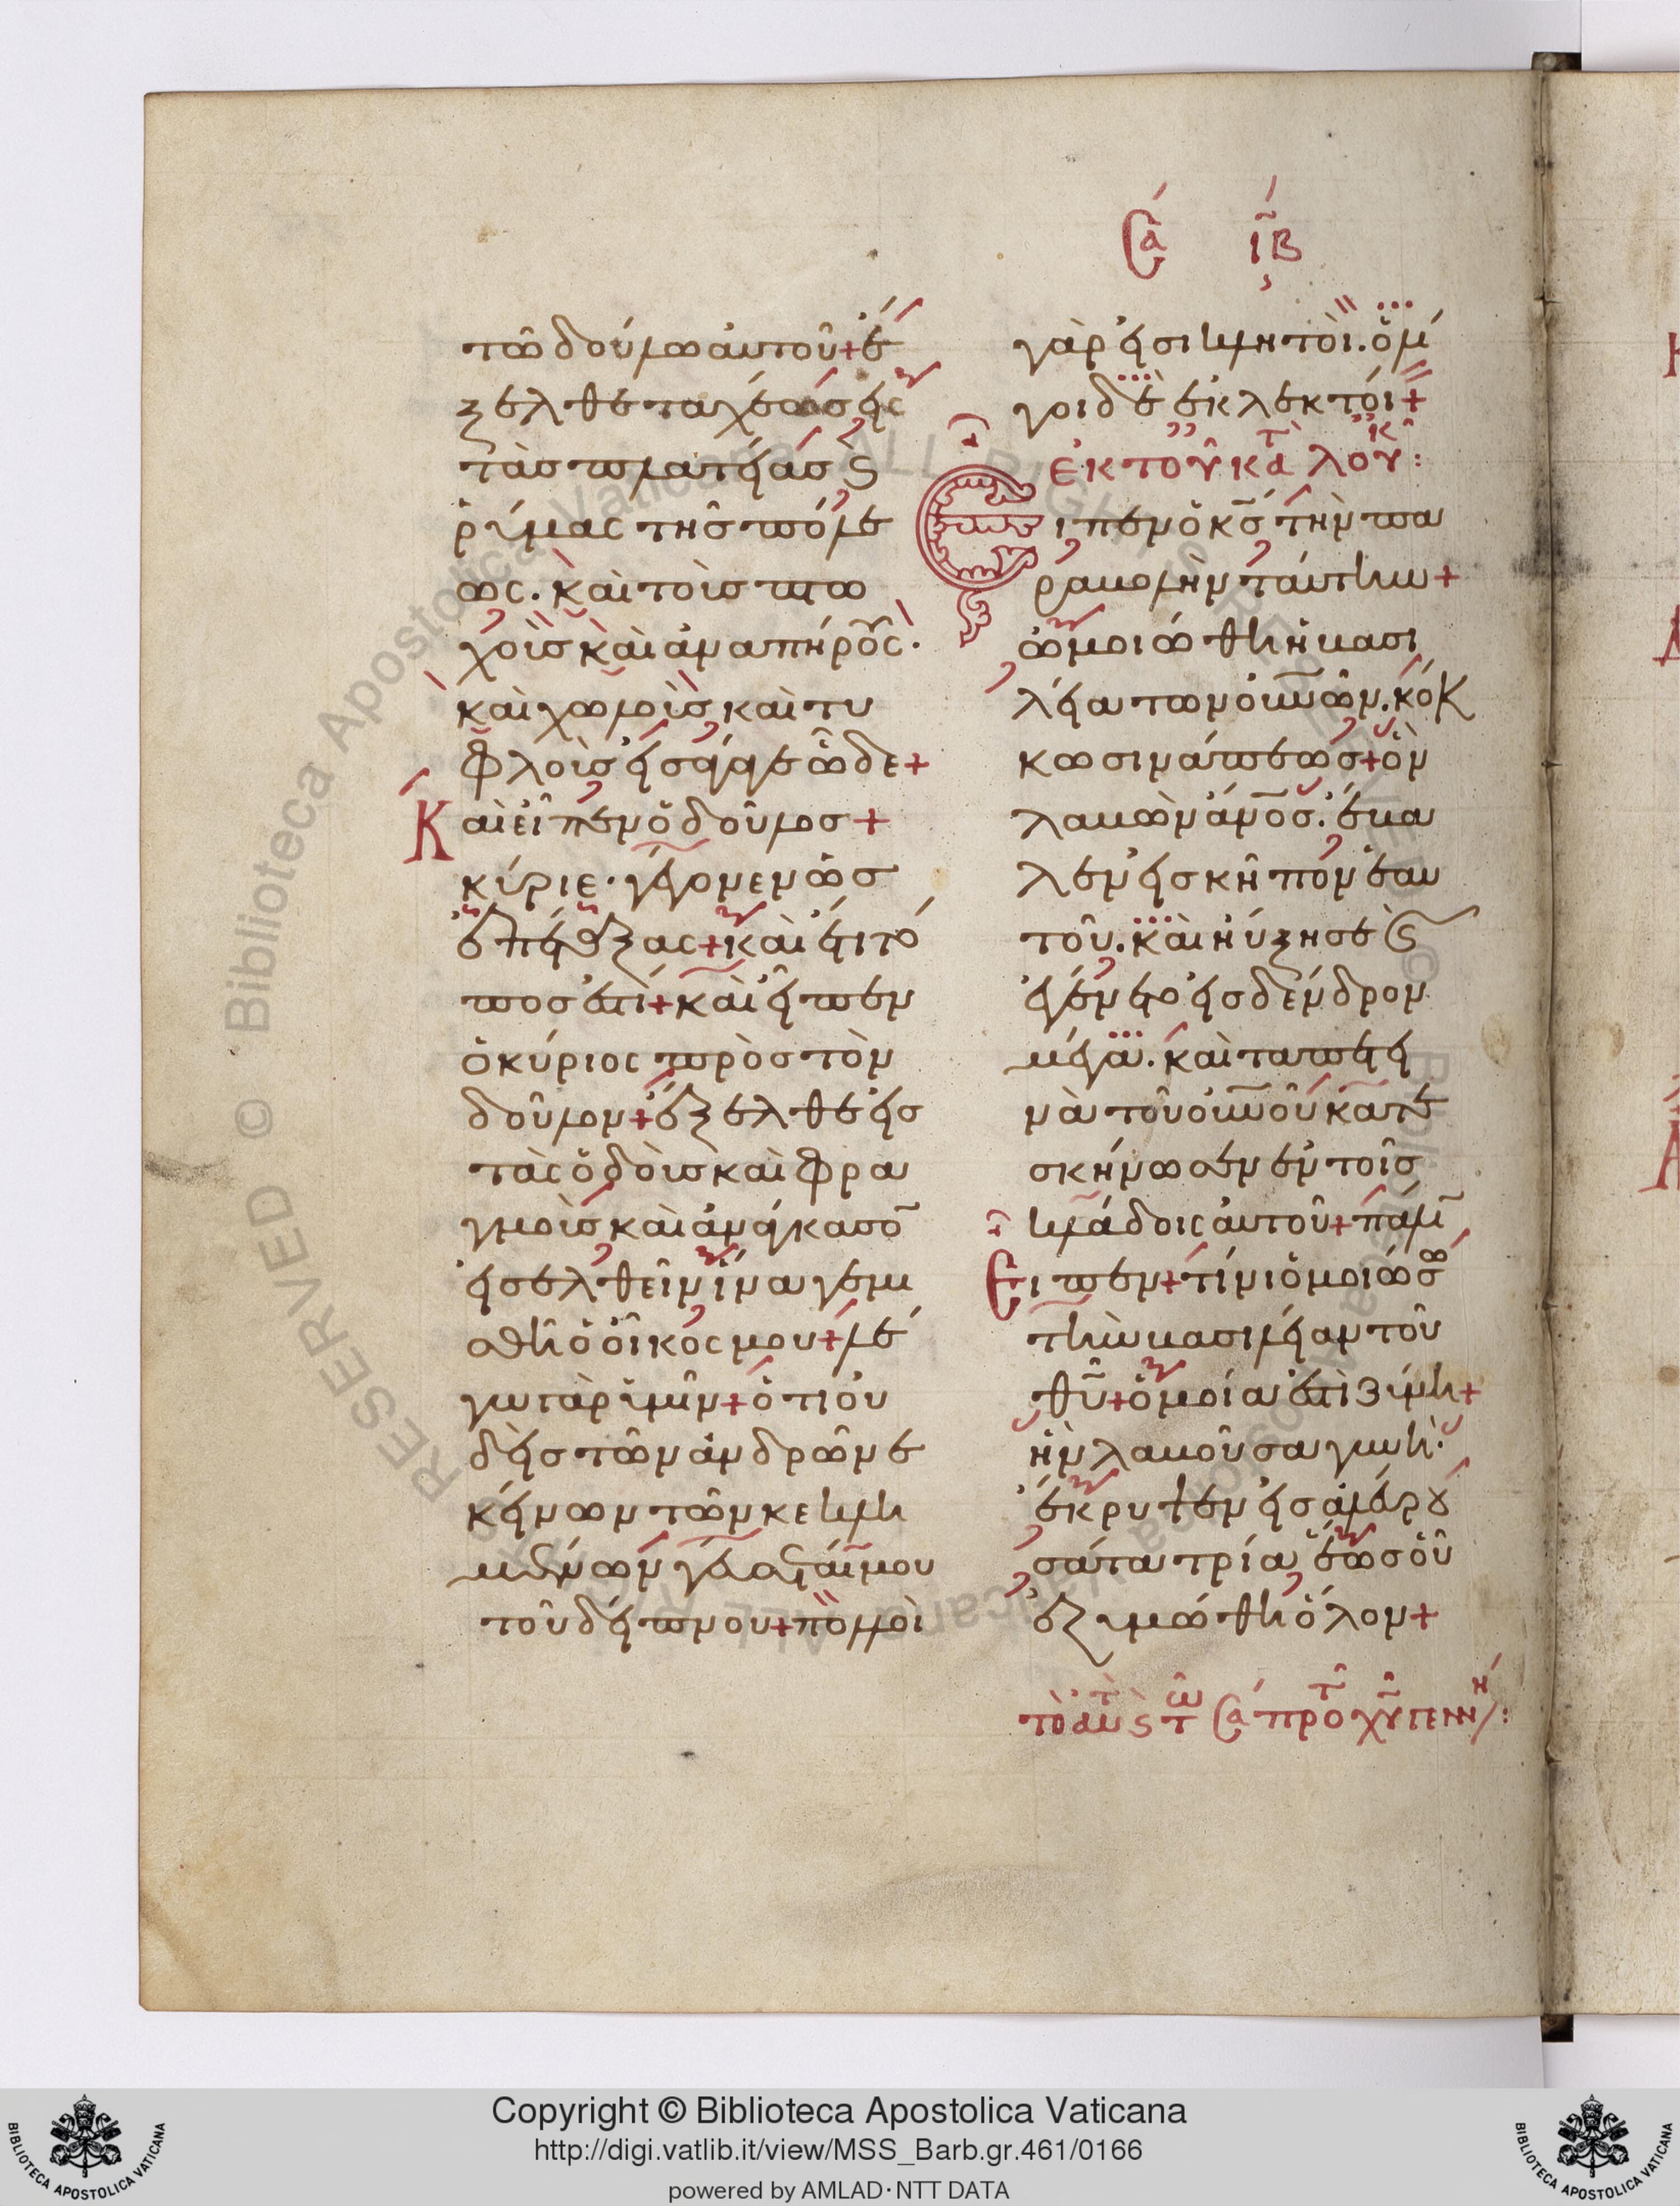 Σα ιβ
τῶ δούλω αὐτοῦ + ἔ
ξελθε ταχέως εἰς
τὰς πλατείας ϗ
ῥύμας τῆς πόλε
ως. καὶ τοὺς πτω
χοὺς καὶ ἀναπήρους.
καὶ χωλοὺς καὶ τυ
φλοὺς εἰσάγαγε ὧδε +
Καὶ εἶπεν ὁ δοῦλος +
κύριε. γέγονεν ὡς
ἐπέταξας + καὶ ἔτι τό
πος ἐστὶ + καὶ εἶπεν
ὁ κύριος πρὸς τὸν
δοῦλον + ἔξελθε εἰς
τὰς ὁδοὺς καὶ φρα
γμοὺς καὶ ἀνάγκασον
εἰσελθεῖν ἵνα γεμι
σθῆ ὁ οἶκος μου + λέ
γω γὰρ ὑμῖν + ὅτι οὐ
δεὶς τῶν ἀνδρῶν ἐ
κείνων τῶν κεκλη
μένων γεύσεταί μου
τοῦ δείπνου + πολλοὶ
γάρ εἰσι κλητοὶ. ὀλί
γοι δὲ ἐκλεκτοί +
ἐκ τοῦ κατὰ λουκ:
Εἶπεν ὁ κς τὴν πα
ραβολὴν ταύτην +
ὡμοιώθη ἡ βασι
λεία τῶν οὐνῶν. κόκ
κω σινάπεως + ὃν
λαβὼν ἀνος. ἔβα
λεν εἰς κῆπον ἑαυ
τοῦ. καὶ ηὔξησε ϗ
ἐγένετο εἰς δένδρον
μέγα. καὶ τὰ πετει
νὰ τοῦ οὐνοῦ κατε
σκήνωσεν ἐν τοῖς
κλάδοις αὐτοῦ + πάλιν
Εἶπεν + τίνι ὁμοιώσω
τὴν βασιλείαν τοῦ
θυ + ὁμοία ἐστὶ ζύμη +
ἣν λαβοῦσα γυνὴ.
ἔκρυψεν εἰς ἀλεύρου
σάτα τρία, ἕως οὗ
ἐζυμώθη ὅλον +
τὸ αὐτὸ ϗ τω Σα πρὸ τῆς χυ γεννή:
Copyright © Biblioteca Apostolica Vaticana
http://digi.vatlib.it/view/MSS_Barb.gr.461/0166
powered by AMLAD·NTT DATA